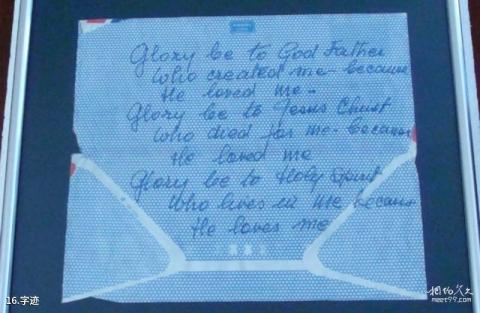 Glory be to God Father
Who created me - because
He loved me -
Glory be to Jesus Christ
Who died for me - because
He loved me
Glory be to Holy Spirit
Who lives in me because
He loves me
16.字迹
相约久久
meet99.com